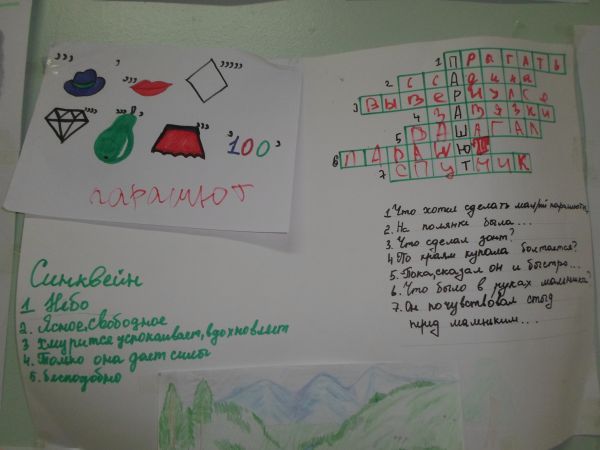 ,,, ,,,,,
, ,,, ,,
100 ,
парашют
1 ПРЫГАТЬ
2 ССАДИНА
3 ВЫВЕРНУЛСЯ
4 ЗАВЯЗКИ
5 ЗАШАГАЛ
6 ПАРАШЮТ
7 СПУТНИК
1. Что хотел сделать с
2. На полянке была...
3. Что сделал зонт?
4. По краям купола болтается?
5. Пока, сказал он и быстро...
6. Что было в руках мальчика?
7. Он почувствовал стыд
перед маленьким...
Синквейн
1 Небо
2. Ясное, свободное
3 Хмурится успокаивает, вдохновляет
4. Только она дает силы
5. бесподобно